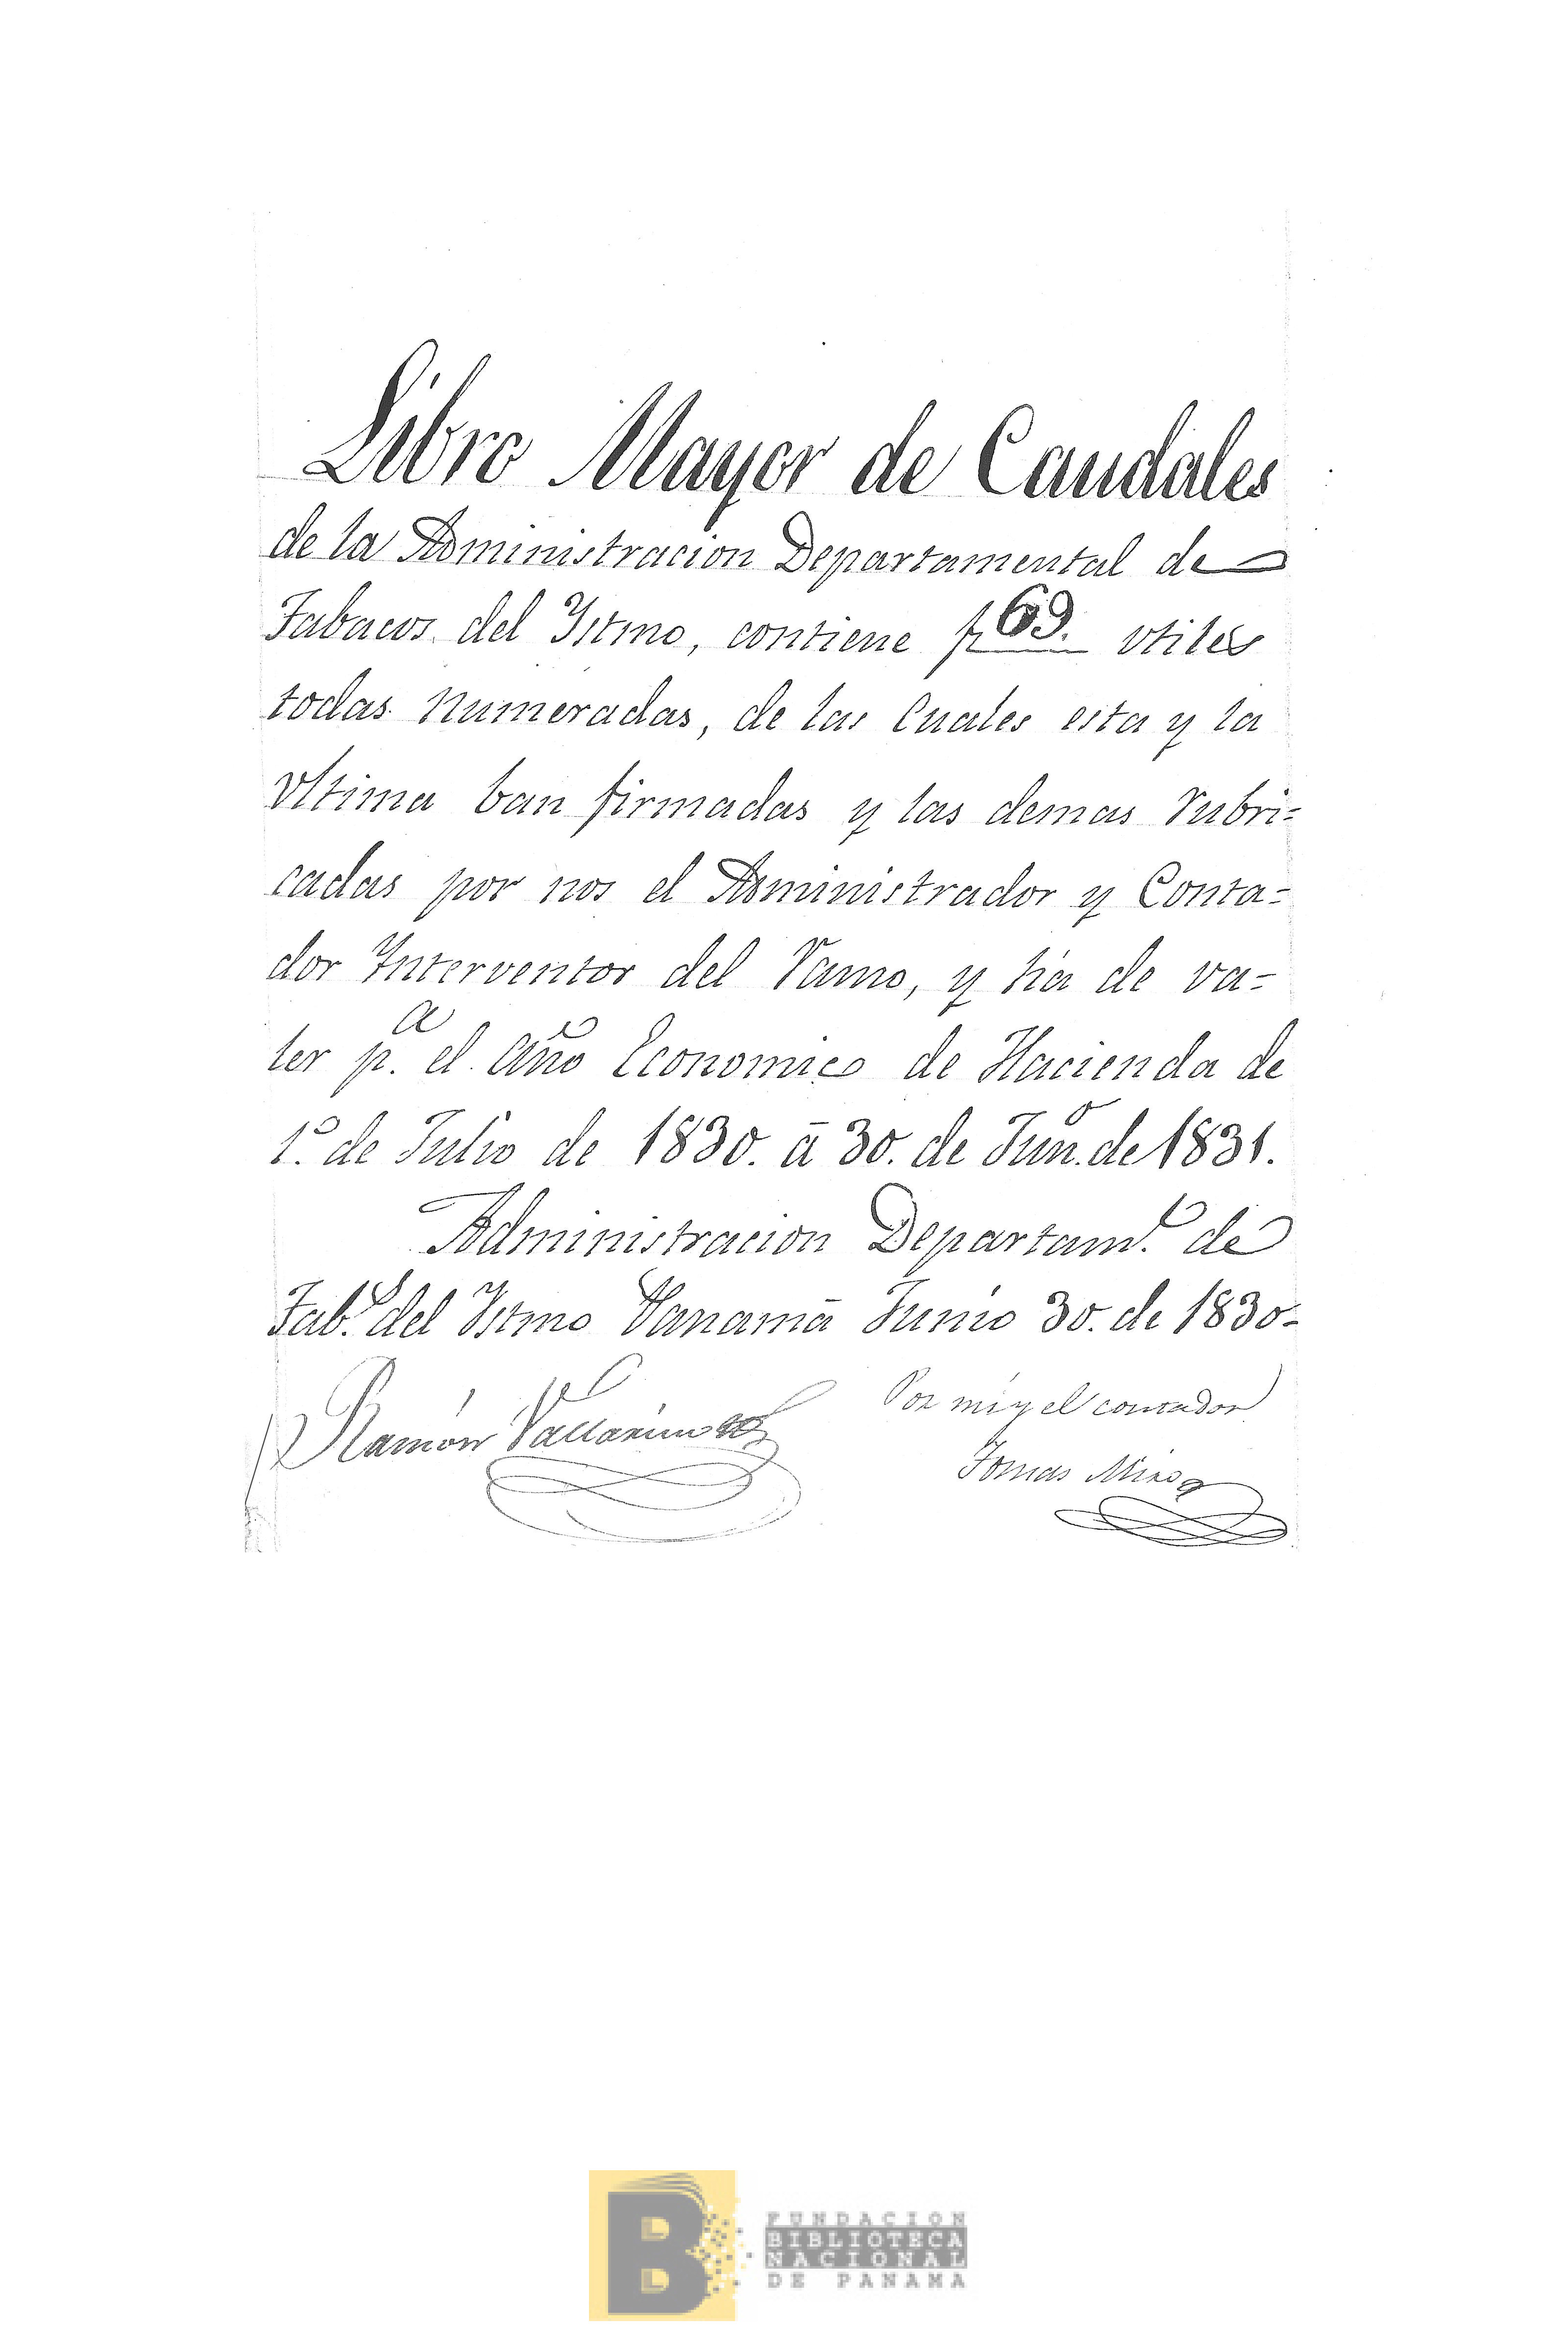 Libro Mayor de Caudales
de la Administracion Departamental de
Tabacos del Ystmo, contiene f 69. utiles
todas numeradas, de las Cuales esta y la
ultima ban firmadas y las demas rubri=
cadas por nos el Administrador y Conta=
dor Ynterventor del Ramo, y ha de va=
ler p.a el año Economico de Hacienda de
1.o de Julio de 1830. â 30. de Jun.o de 1831.
Administracion Departam.l de
Tab.s del Ystmo Panamâ Junio 30. de 1830=
Por mi y el contador
Ramon Vallarino
Tomas Miro
FUNDACION
BIBLIOTECA
NACIONAL
DE PANAMA